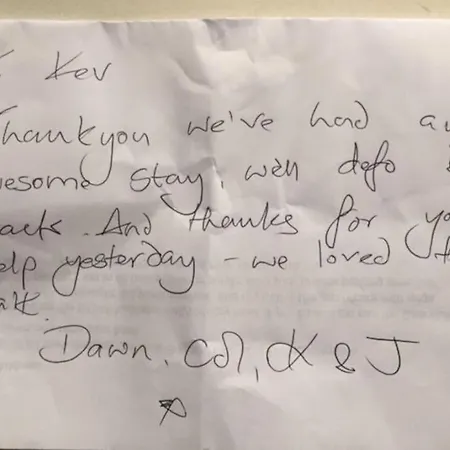 Kev
Thankyou we've had a
wesome stay, we'll defo
back. And thanks for yo
elp yesterday - we loved t
alk.
Dawn, Col, K & J